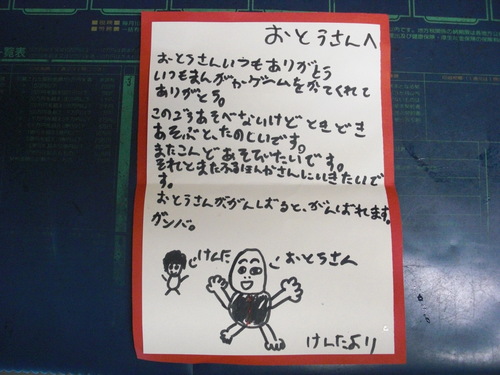 おとうさんへ
おとうさんいつもありがとう
いつもまんがやゲームをかてくれて
ありがとう。
このごろあそべないけど ときどき
あそぶと、たのしいです。
またこんどあそびたいです。
それとまたふるほんやさんにいきたいで
す。
おとうさんががんばると、がんばれます。
ガンバ。
けんた
おとうさん
けんたより
一覧表